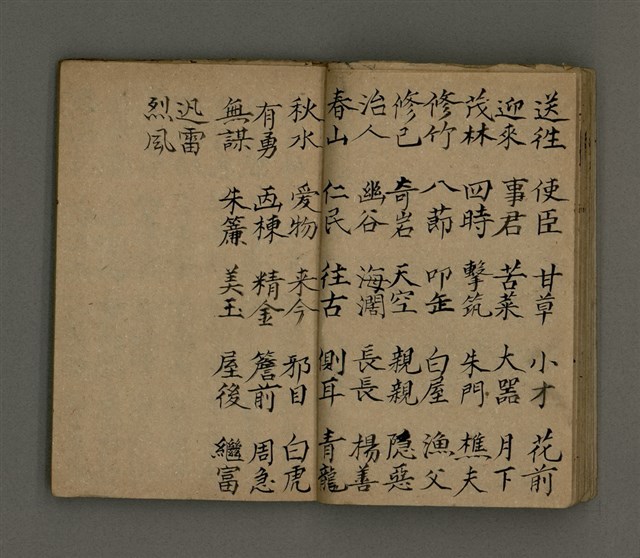 送往 使臣 甘草 小才 花前
迎來 事君 苦菜 大器 月下
茂林 四時 擊筑 朱門 樵夫
修竹 八莭 叩缶 白屋 漁父
修己 奇岩 天空 親親 隐惡
治人 幽谷 海濶 長長 楊善
春山 仁民 往古 側耳 青龍
秋水 爱物 来今 邪目 白虎
有勇 画棟 精金 簷前 周急
無謀 朱簾 美玉 屋後 繼富
迅雷
烈風